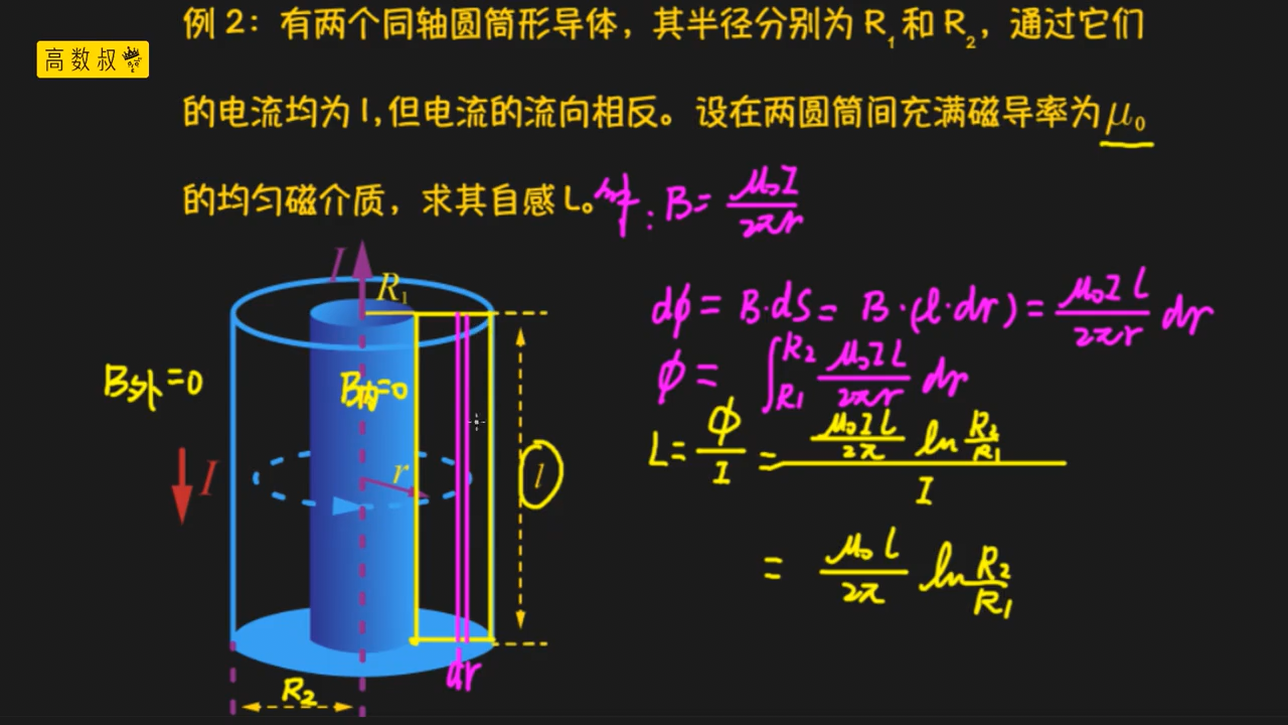 高数叔
例2：有两个同轴圆筒形导体，其半径分别为R₁和R₂，通过它们
的电流均为I,但电流的流向相反。设在两圆筒间充满磁导率为μ₀
的均匀磁介质，求其自感L。
外：B=μ₀I/2πr
I
R₁
dϕ=B·dS=B·(l·dr)=μ₀IL/2πr dr
B外=0
B内=0
ϕ=∫_{R1}^{R2} μ₀IL/2πr dr
L=ϕ/I=(μ₀IL/2π ln R2/R1)/I
I
r
l
=μ₀L/2π ln R2/R1
dr
R2